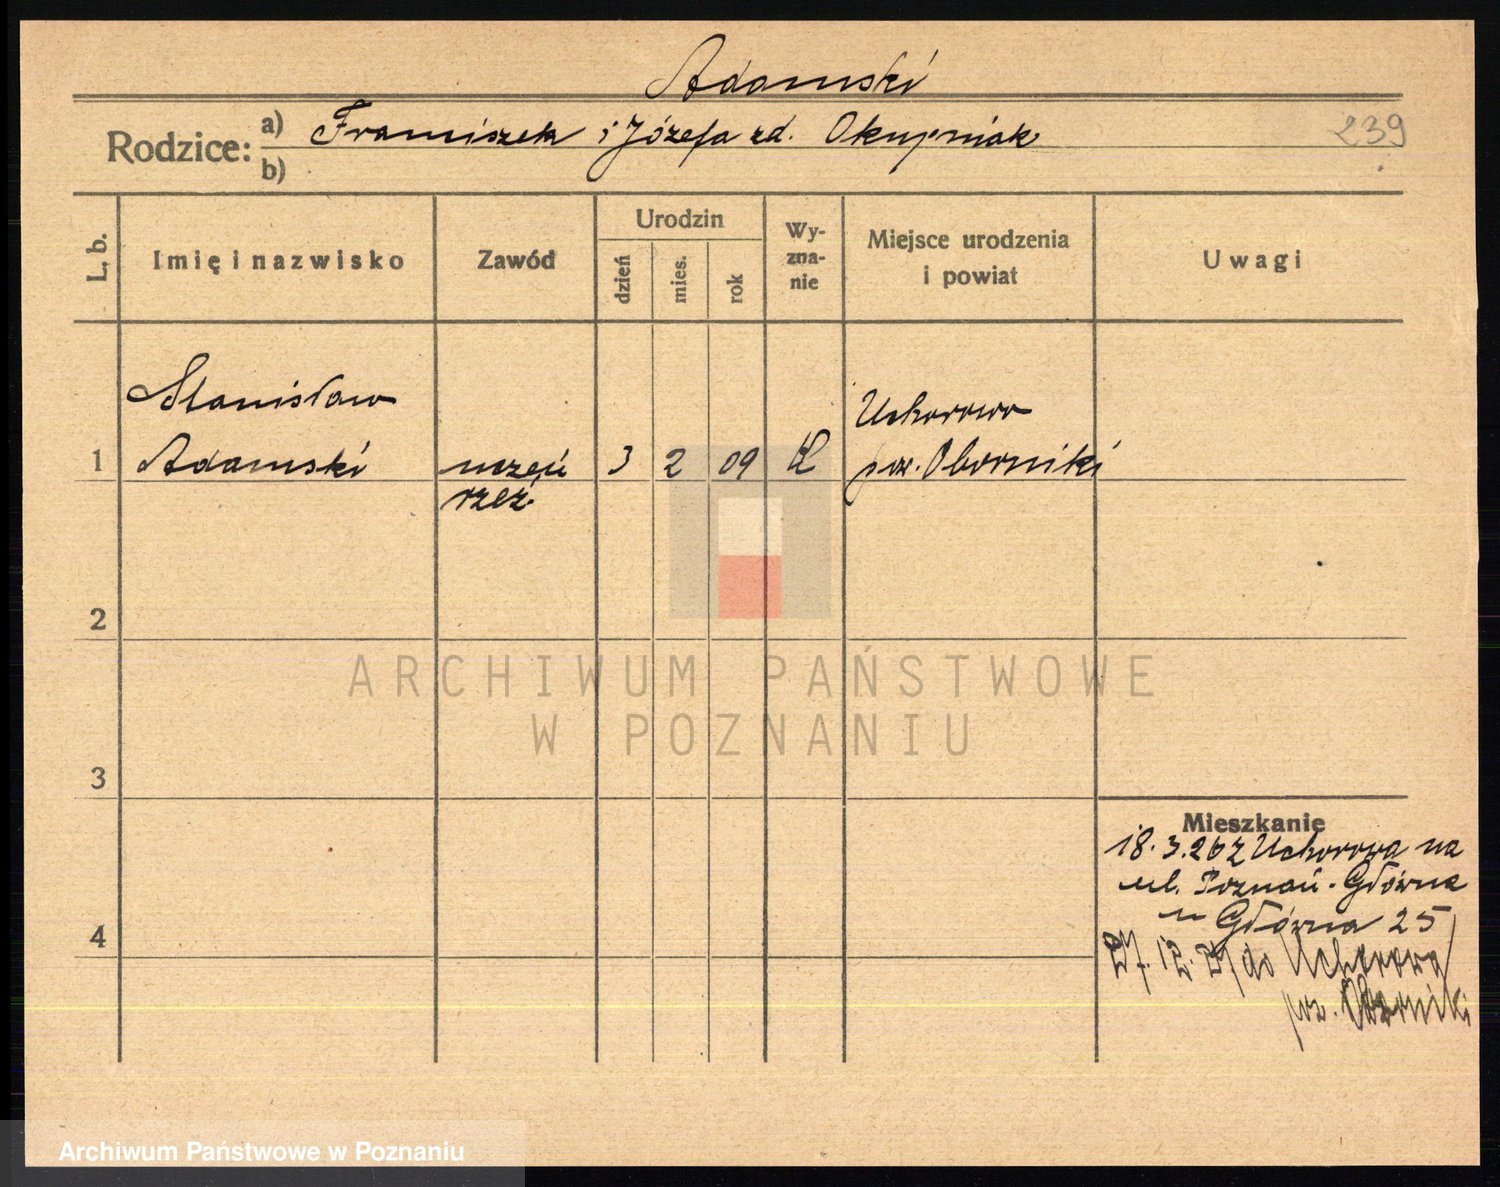 Adamski
Rodzice: a) Franciszek i Józefa zd. Okupniak 239
b)
L. b. Imię i nazwisko Zawód Urodzin dzień mies. rok Wy-zna-nie Miejsce urodzenia i powiat Uwagi
Stanisław Uchorowo
1 Adamski uczeń 3 2 09 pow. Oborniki
rzeź.
2
ARCHIWUM PAŃSTWOWE
W POZNANIU
3
Mieszkanie
18.3.26 z Uchorowa na
ul. Poznań-Główna
u Główna 25
4
27.12. do Uchorowa
pow. Oborniki
Archiwum Państwowe w Poznaniu